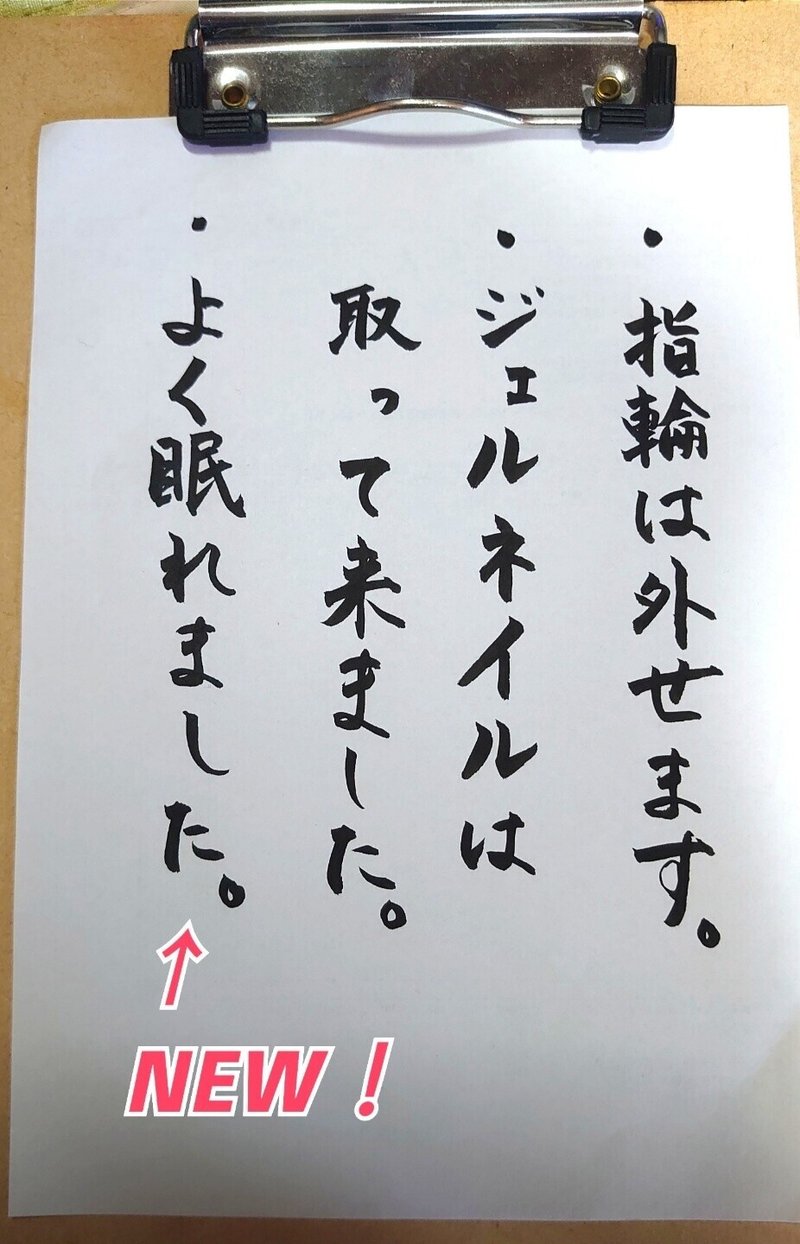 ・指輪は外せます。
・ジェルネイルは
取って来ました。
・よく眠れました。
↑
NEW！